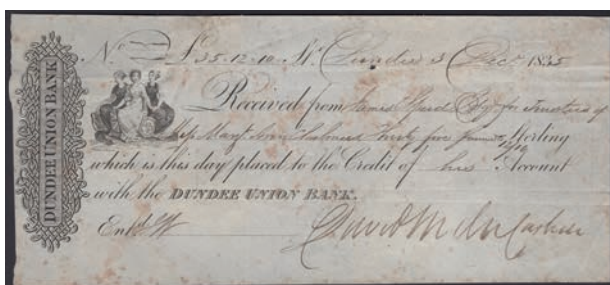 DUNDEE UNION BANK
No £35-12-10 St. Dundee 3 Decr. 1835
Received from James Esqr for Trustees of
Miss Mary Ann Thirty five Pounds 12/10 Sterling
which is this day placed to the Credit of her Account
with the DUNDEE UNION BANK.
Entd. David Cashier